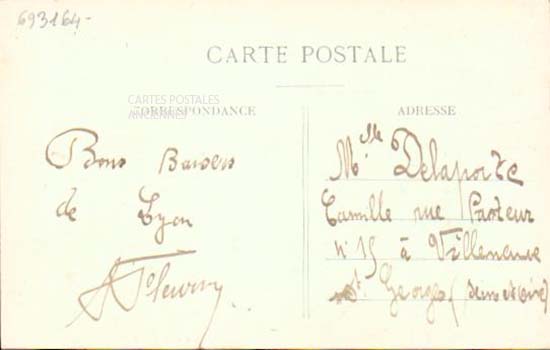 693164-
CARTE POSTALE
CARTES POSTALES
ANCIENNES
CORRESPONDANCE
ADRESSE
Bons Baisers
de Lyon
Mlle Delaporte
Camille rue Pasteur
n° 15 à Villeneuve
St. Georges (Seine et Oise)